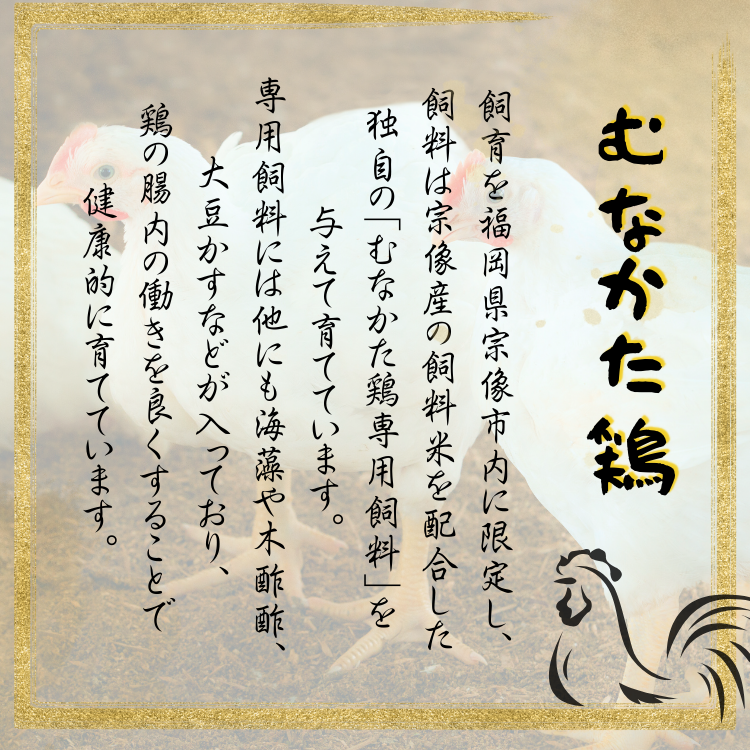 むなかた鶏
飼育を福岡県宗像市内に限定し、
飼料は宗像産の飼料米を配合した
独自の「むなかた鶏専用飼料」を
与えて育てています。
専用飼料には他にも海藻や木酢酢、
大豆かすなどが入っており、
鶏の腸内の働きを良くすることで
健康的に育てています。